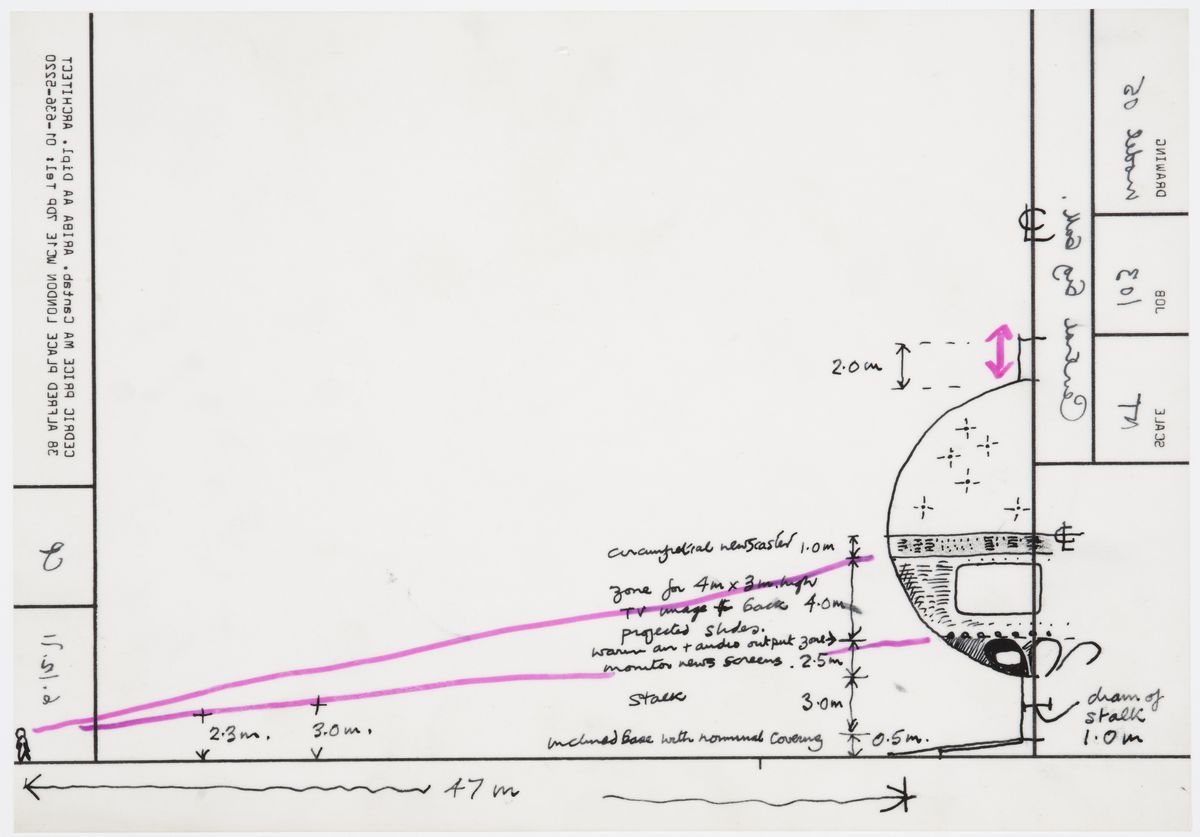 CEDRIC PRICE MA Cantab. ARIBA AA Dipl. ARCHITECT
38 ALFRED PLACE LONDON WC1E 7DP Tel: 01-636-5220
DRAWING
model 05
JOB
103
SCALE
2.0 m
circumferential newscaster 1.0 m
zone for 4m x 3m high
TV image & back 4.0m
projected slides.
warm air + audio output zone
monitor news screens . 2.5m
stalk 3.0m
inclined base with nominal covering 0.5 m.
2.3 m.
3.0 m.
diam of
stalk
1.0 m
47 m